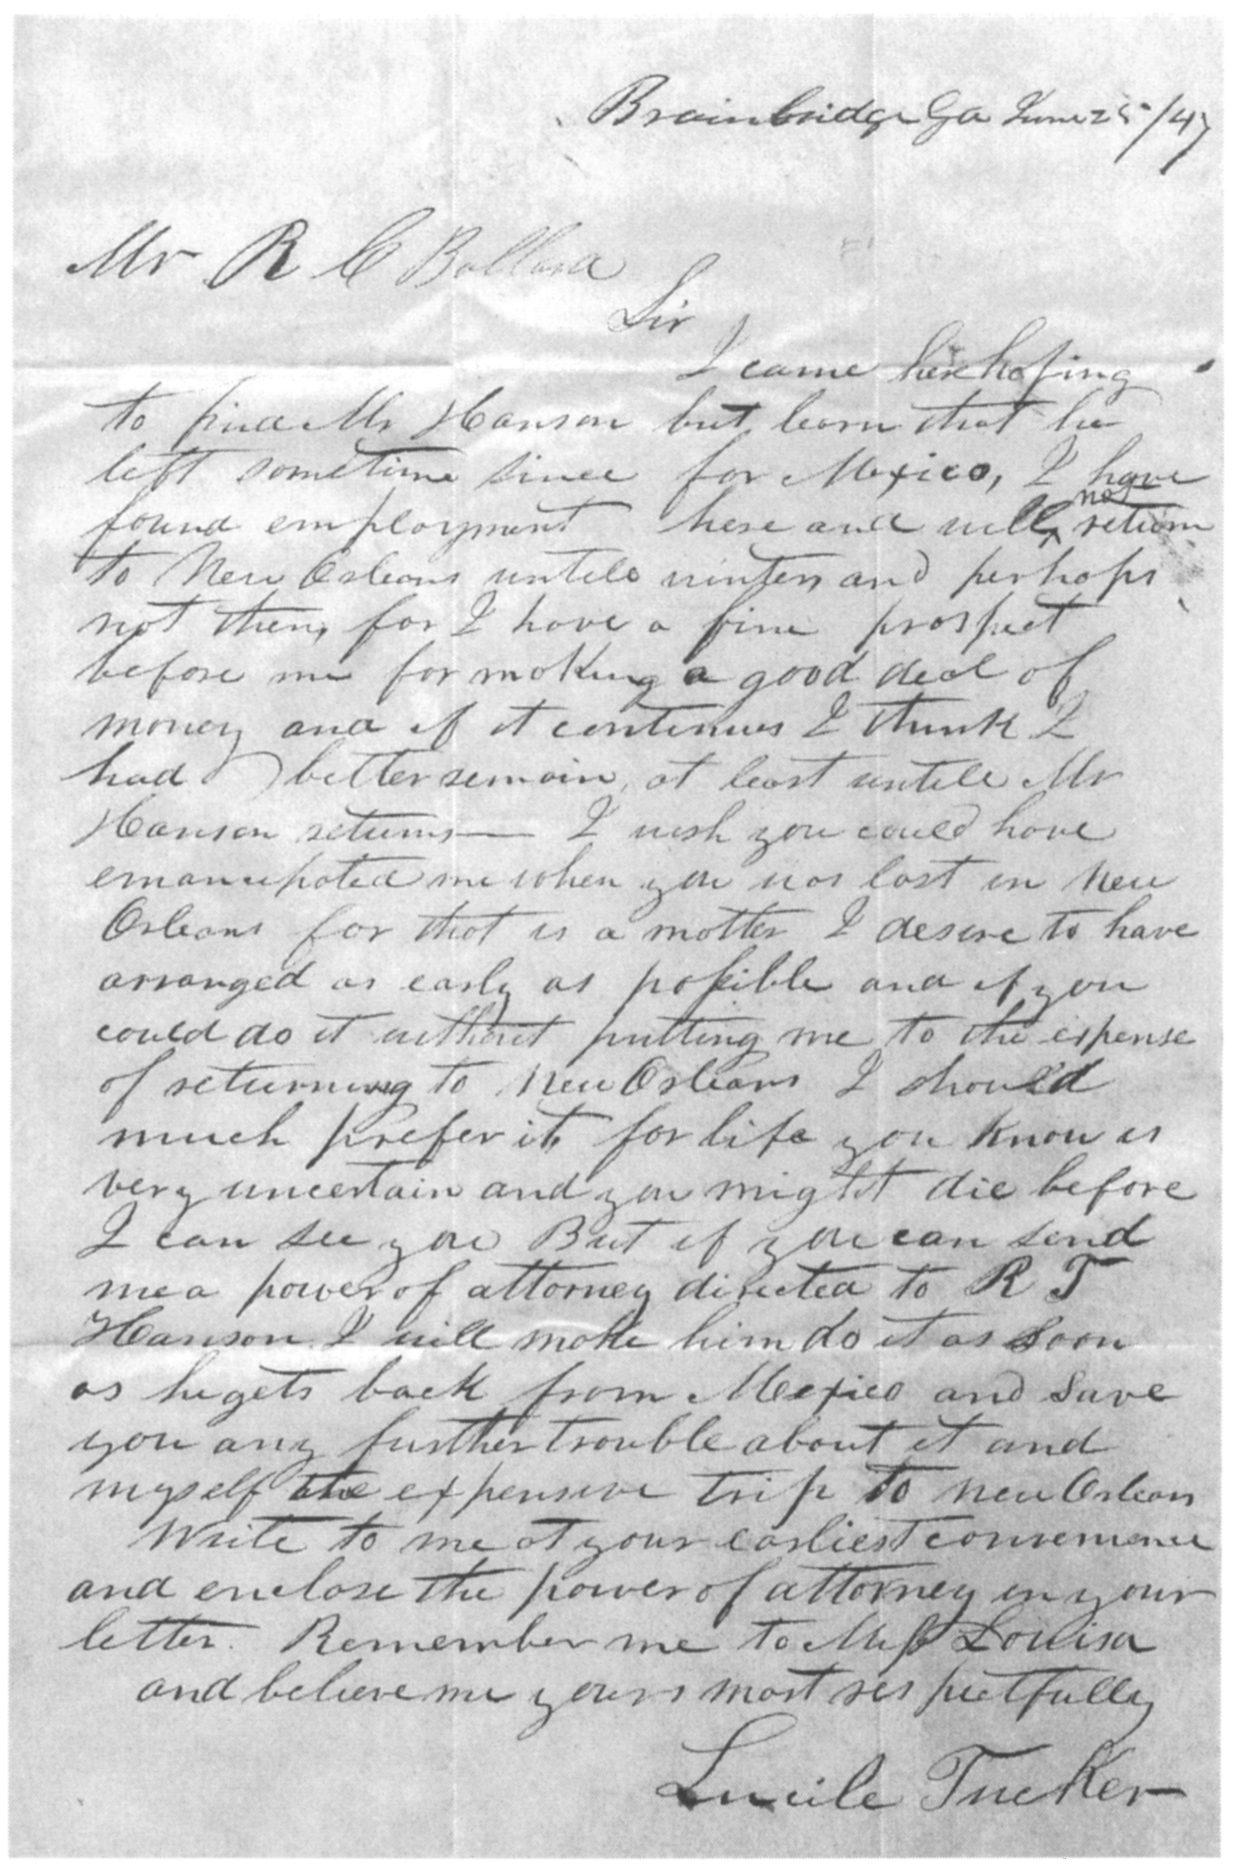 Brainbridge Ga June 25/47
Mr R C Ballard
Sir
I came here hoping
to find Mr Hanson but learn that he
left sometime since for Mexico, I have
found employment here and will not return
to New Orleans untile winter, and perhaps
not then, for I have a fine prospect
before me for making a good deal of
money and if it continues I think I
had better remain, at least untile Mr
Hanson returns — I wish you could have
emancipated me when you was last in New
Orleans for that is a matter I desire to have
arranged as early as possible and if you
could do it without putting me to the expense
of returning to New Orleans I should
much prefer it, for life you know is
very uncertain and you might die before
I can see you But if you can send
me a power of attorney directed to R T
Hanson I will make him do it as soon
as he gets back from Mexico and save
you any further trouble about it and
myself the expensive trip to New Orleans
Write to me at your earliest convenience
and enclose the power of attorney in your
letter. Remember me to Miss Louisa
and believe me yours most respectfully
Lucile Tucker